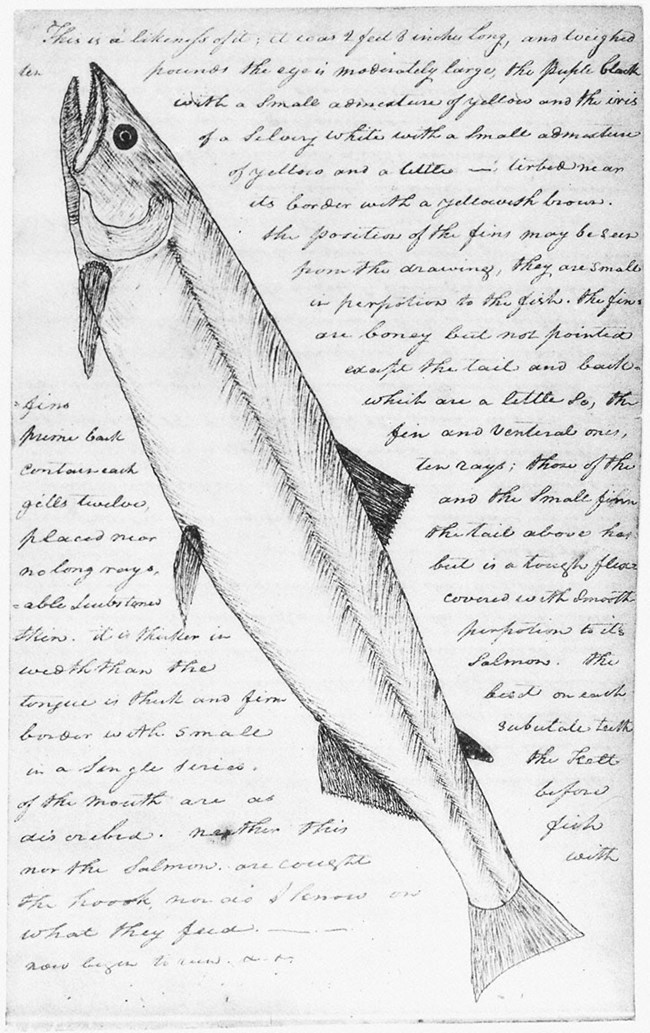 This is a likeness of it; it was 2 feet 8 inches Long, and weighed
ten pounds the eye is moderately large, the puple black
with a small admixture of yellow and the iris
of a Silvery white with a small admixture
of yellow and a little — tirbed near
its border with a yellowish brown.
the position of the fins may be seen
from the drawing, they are small
in perpotion to the fish. the fins
are boney but not pointed
except the tail and back=
=fins which are a little so, the
prime back fin and ventral ones,
contain each ten rays; those of the
gills twelve, and the small finn
placed near the tail above has
no long rays, but is a tough flex=
=able substance covered with smooth
skin. it is thicker in perpotion to its
width than the Salmon. the
tongue is thick and firm beset on each
border with small subulate teeth
in a single series. the Teeth
of the mouth are as before
discrebed. neather this fish
nor the Salmon. are caught with
the hoook, nor do I know on
what they feed. — —
now begin to run. &. &.